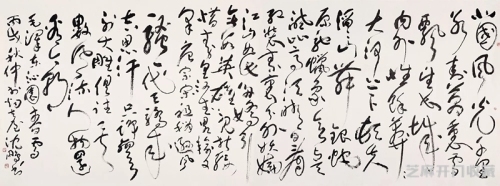 北国风光千里
冰封万里雪
飘望长城
内外惟余莽莽
大河上下顿失
滔滔山舞银蛇
原驰蜡象欲与天
公试比高须晴日看
红装素裹分外妖娆
江山如此多娇引
无数英雄竞折腰
惜秦皇汉武略输文采
唐宗宋祖稍逊风
骚一代天骄成
吉思汗只识弯弓
射大雕俱往矣
数风流人物还
看今朝
毛泽东沁园春雪
丙戌秋仲 沈鹏